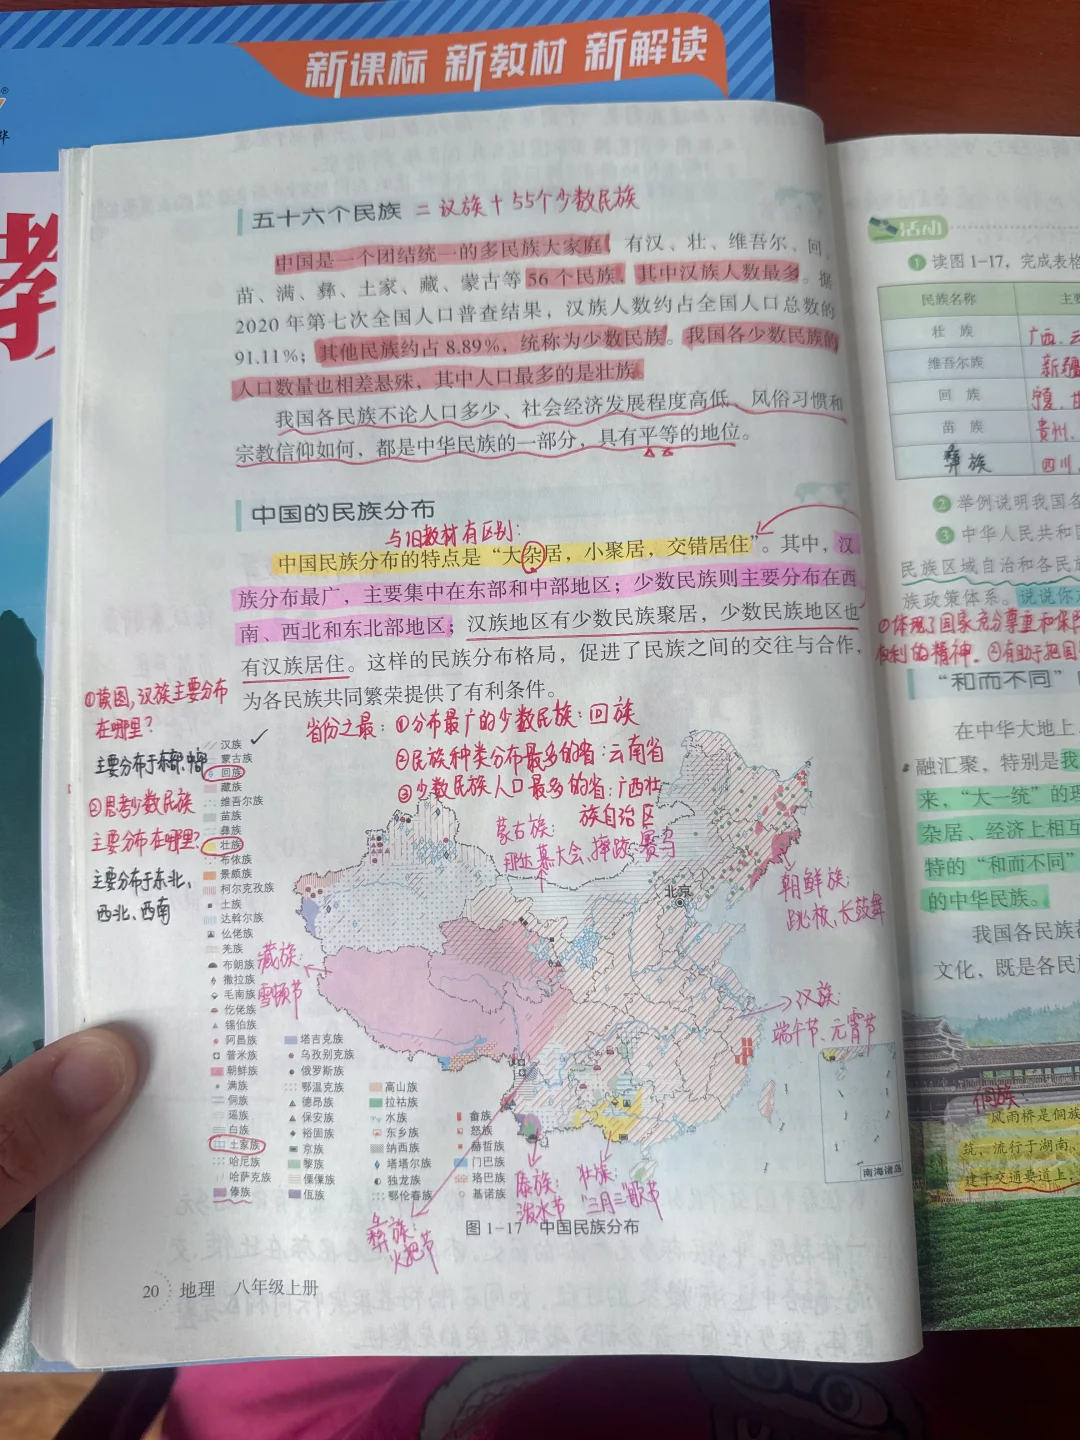 新课标 新教材 新解读
五十六个民族 = 汉族 + 55个少数民族
中国是一个团结统一的多民族大家庭，有汉、壮、维吾尔、回、
苗、满、彝、土家、藏、蒙古等 56 个民族，其中汉族人数最多。据
2020 年第七次全国人口普查结果，汉族人数约占全国人口总数的
91.11%；其他民族约占 8.89%，统称为少数民族。我国各少数民族的
人口数量也相差悬殊，其中人口最多的是壮族。
我国各民族不论人口多少、社会经济发展程度高低、风俗习惯和
宗教信仰如何，都是中华民族的一部分，具有平等的地位。
中国的民族分布
与旧教材有区别：
中国民族分布的特点是“大杂居，小聚居，交错居住”。其中，汉
族分布最广，主要集中在东部和中部地区；少数民族则主要分布在西
南、西北和东北部地区；汉族地区有少数民族聚居，少数民族地区也
有汉族居住。这样的民族分布格局，促进了民族之间的交往与合作，
为各民族共同繁荣提供了有利条件。
①读图，汉族主要分布
在哪里？
主要分布于东部、中部
②思考少数民族
主要分布在哪里？
主要分布于东北、
西北、西南
省份之最：①分布最广的少数民族：回族
②民族种类分布最多的省：云南省
③少数民族人口最多的省：广西壮
族自治区
蒙古族：
那达慕大会，摔跤，赛马
朝鲜族：
跳板、长鼓舞
藏族：
雪顿节
汉族：
端午节、元宵节
傣族：
泼水节
壮族：
“三月三”歌节
彝族：
火把节
北京
南海诸岛
汉族
蒙古族
回族
藏族
维吾尔族
苗族
彝族
壮族
布依族
景颇族
柯尔克孜族
土族
达斡尔族
仫佬族
羌族
布朗族
撒拉族
毛南族
仡佬族
锡伯族
阿昌族
普米族
朝鲜族
满族
侗族
瑶族
白族
土家族
哈尼族
哈萨克族
傣族
塔吉克族
乌孜别克族
俄罗斯族
鄂温克族
德昂族
保安族
裕固族
京族
黎族
傈僳族
佤族
高山族
拉祜族
水族
东乡族
纳西族
塔塔尔族
独龙族
鄂伦春族
畲族
怒族
赫哲族
门巴族
珞巴族
基诺族
图 1-17 中国民族分布
20 地理 八年级上册
活动
1 读图 1-17，完成表格
民族名称
壮 族 广西、云
维吾尔族 新疆
回 族 宁夏、甘
苗 族 贵州、
彝族 四川、
2 举例说明我国各
3 中华人民共和国
民族区域自治和各民族
族政策体系。说说你
①体现了国家充分尊重和保障
权利的精神。②有助于把国
“和而不同”
在中华大地上
融汇聚，特别是我
来，“大一统”的理
杂居、经济上相互
特的“和而不同”
的中华民族。
我国各民族都
文化，既是各民族
侗族：
风雨桥是侗族
筑，流行于湖南、
建于交通要道上